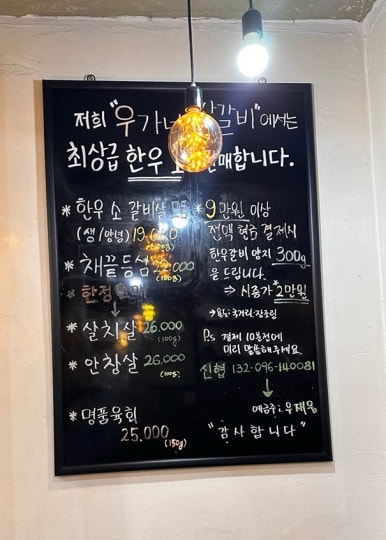 저희 "우가 갈비"에서는
최상급 한우 판매합니다.
* 한우 소 갈비살 모듬
(생/양념)
(100g)
* 채끝등심
(100g)
한정
* 살치살 26.000
(100g)
* 안창살 26.000
(100g)
* 명품육회
25.000 (150g)
* 9만원 이상
전액 현금 결제시
한우갈비 양지 300g
을 드립니다.
⇒ 시중가 *2만원
→ 용도: 국거리·장조림
P.s 결제 10분전에
미리 말씀해주세요.
신협 132-096-140081
예금주:
"감사합니다"